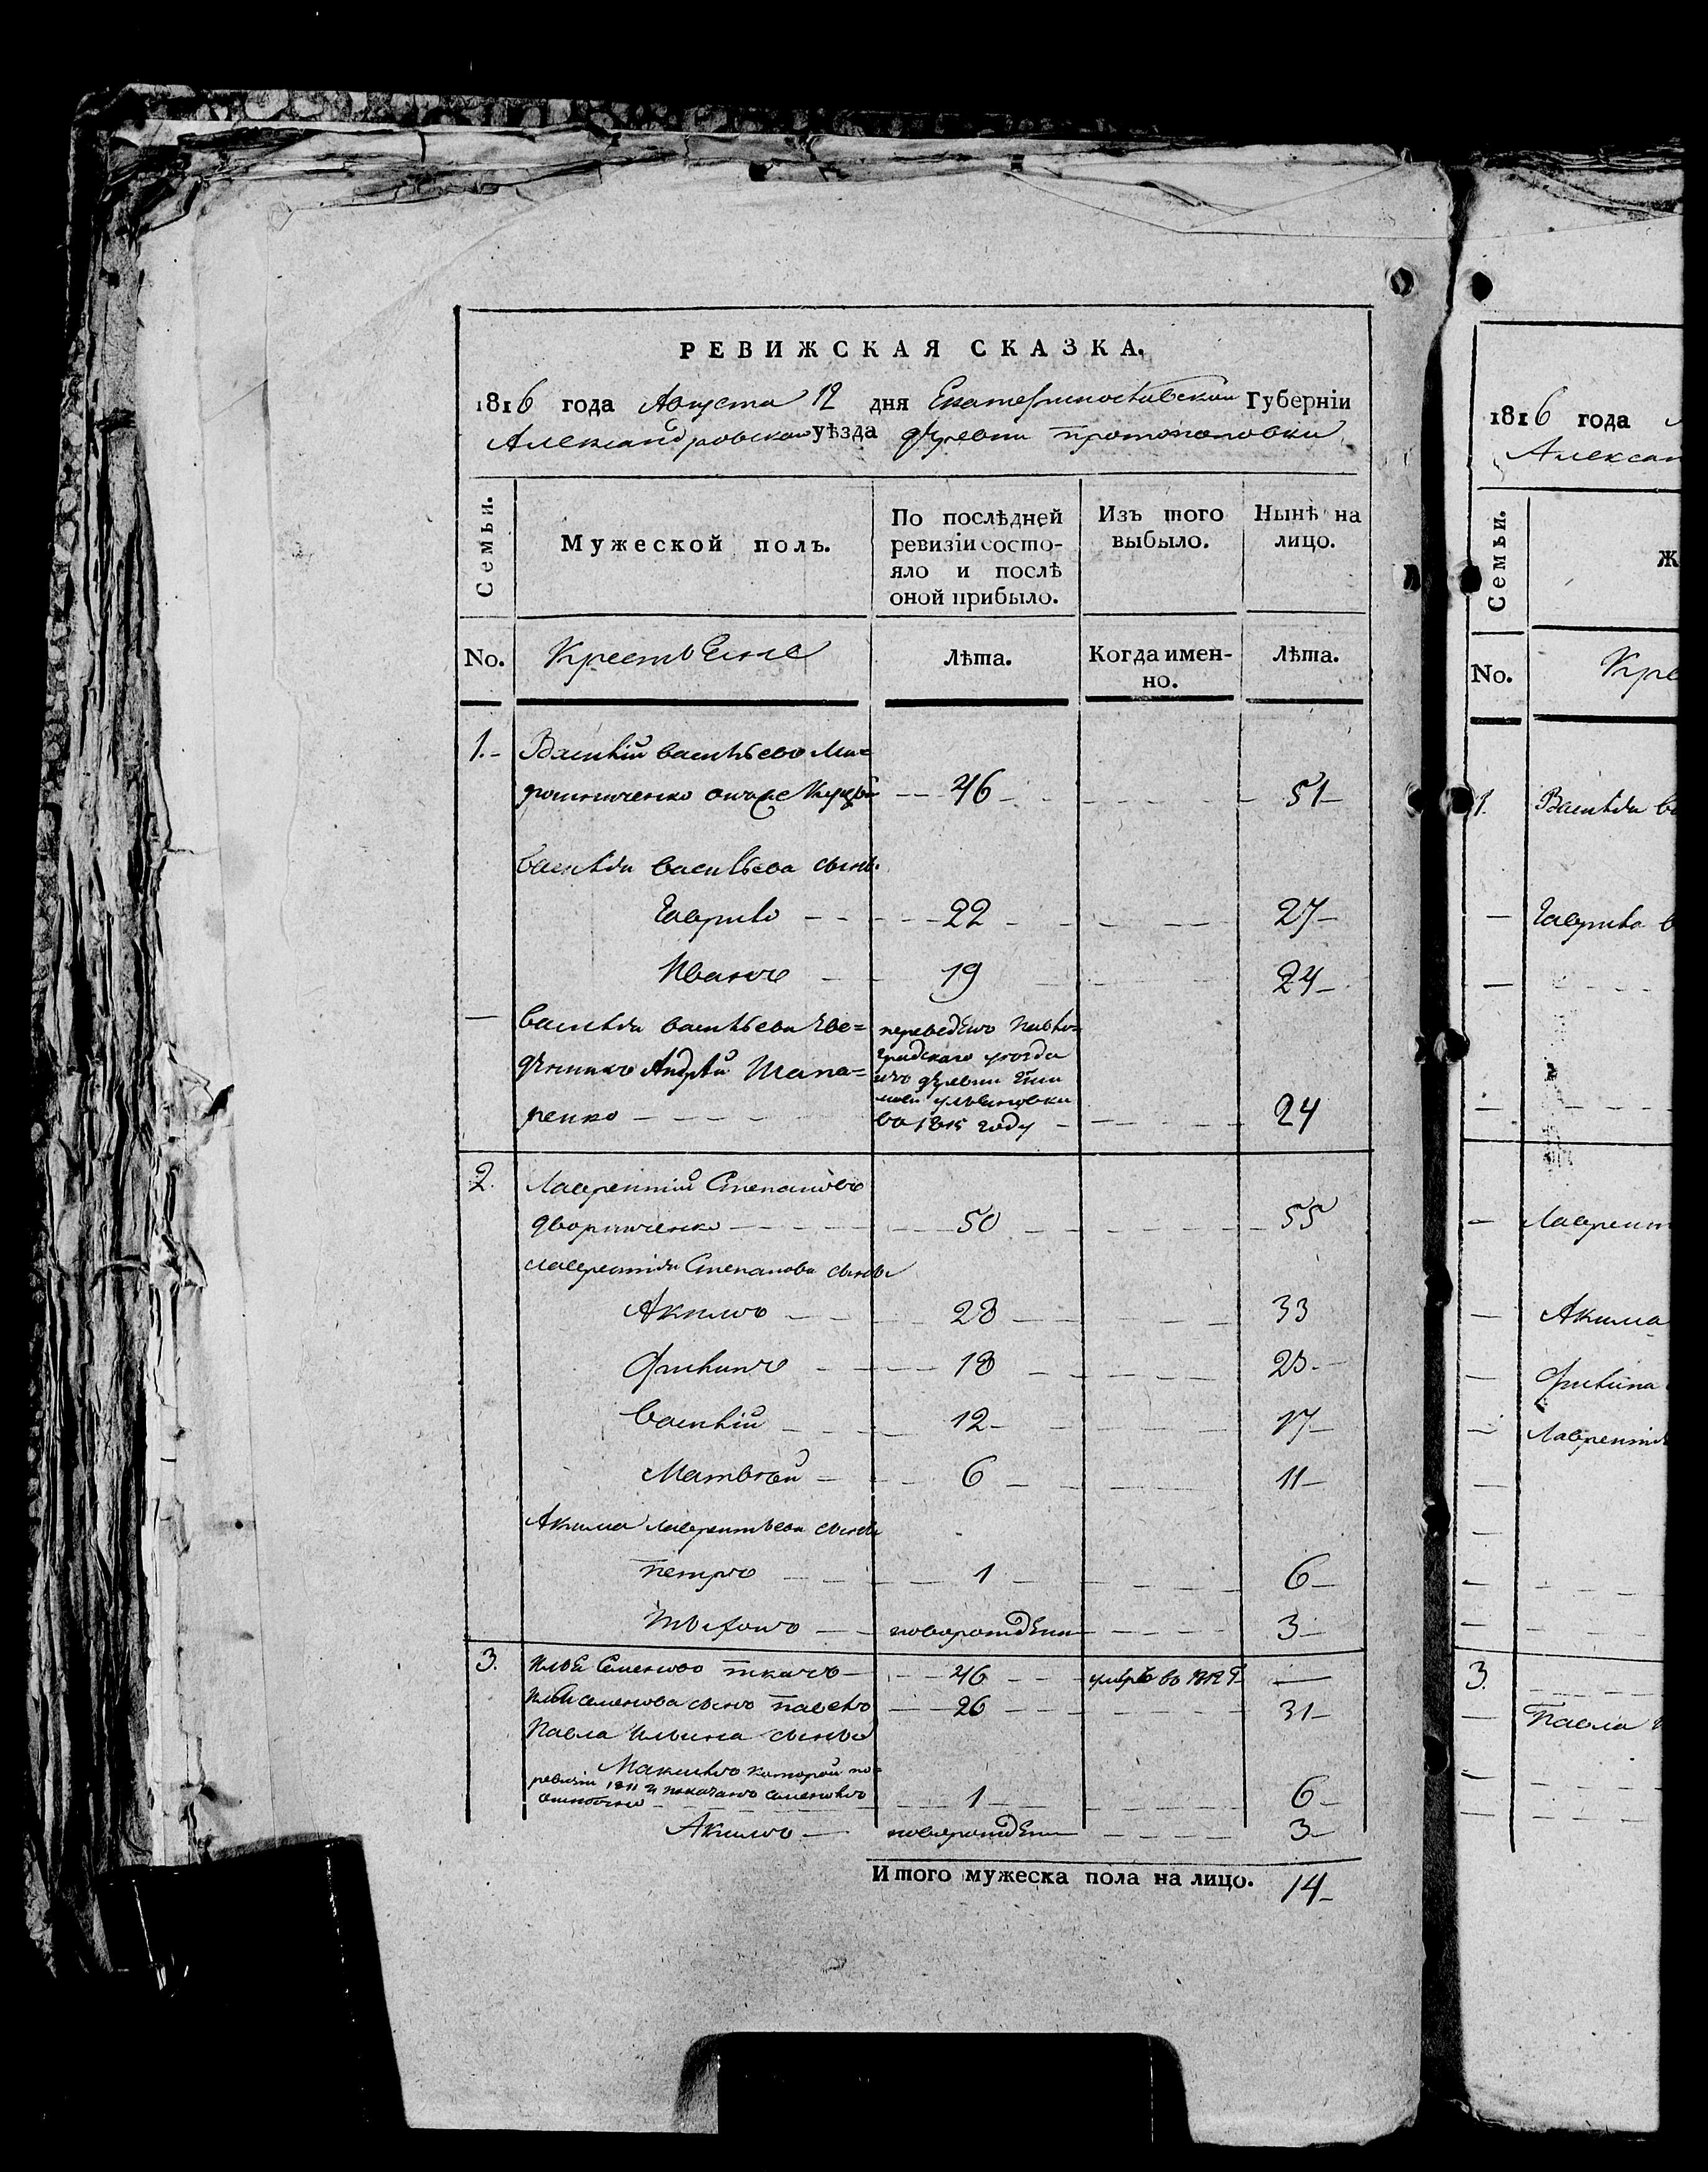 РЕВИЖСКАЯ СКАЗКА.
1816 года Августа 12 дня Екатеринославской Губернiи
Александровскаго уѣзда деревни Протопоповки
Семьи.
Мужеской полъ.
По послѣдней
ревизiи состо-
яло и послѣ
оной прибыло.
Изъ того
выбыло.
Нынѣ на
лицо.
No.
Крестьяне
Лѣта.
Когда имен-
но.
Лѣта.
1.- Василiй Васильевъ Ми=
рошниченко онже 46 51
Василiя Васильева сынъ.
Гаврило 22 27
Иванъ 19 24
Василiя Васильева
Андрей Шапа=
ренко 24
переведенъ Павло=
градскаго уезда
изъ деревни
ульяновки
въ 1815 году
2. Лаврентiй Степановъ
Дворниченко 50 55
Лаврентiя Степанова сыновья
Акимъ 28 33
Филипъ 18 23
Василiй 12 17
Матвѣй 6 11
Акима Лаврентьева сыновья
Петръ 1 6
новорожденъ 3
3. Илья Семеновъ Ткачь 46 умре въ 1812 г.
Ильи Семенова сынъ Павелъ 26 31
Павла Ильина сыновья
Макаръ которой по
ревизiи 1811 г. показанъ
ошибочно 1 6
Акимъ новорожденъ 3
Итого мужеска пола на лицо. 14
1816 года
Александ
Семьи.
Ж
No.
Кре
1. Василiя Ва
Гаврила В
Лаврент
Акима
Филипа
Лаврентiя
3.
Павла И